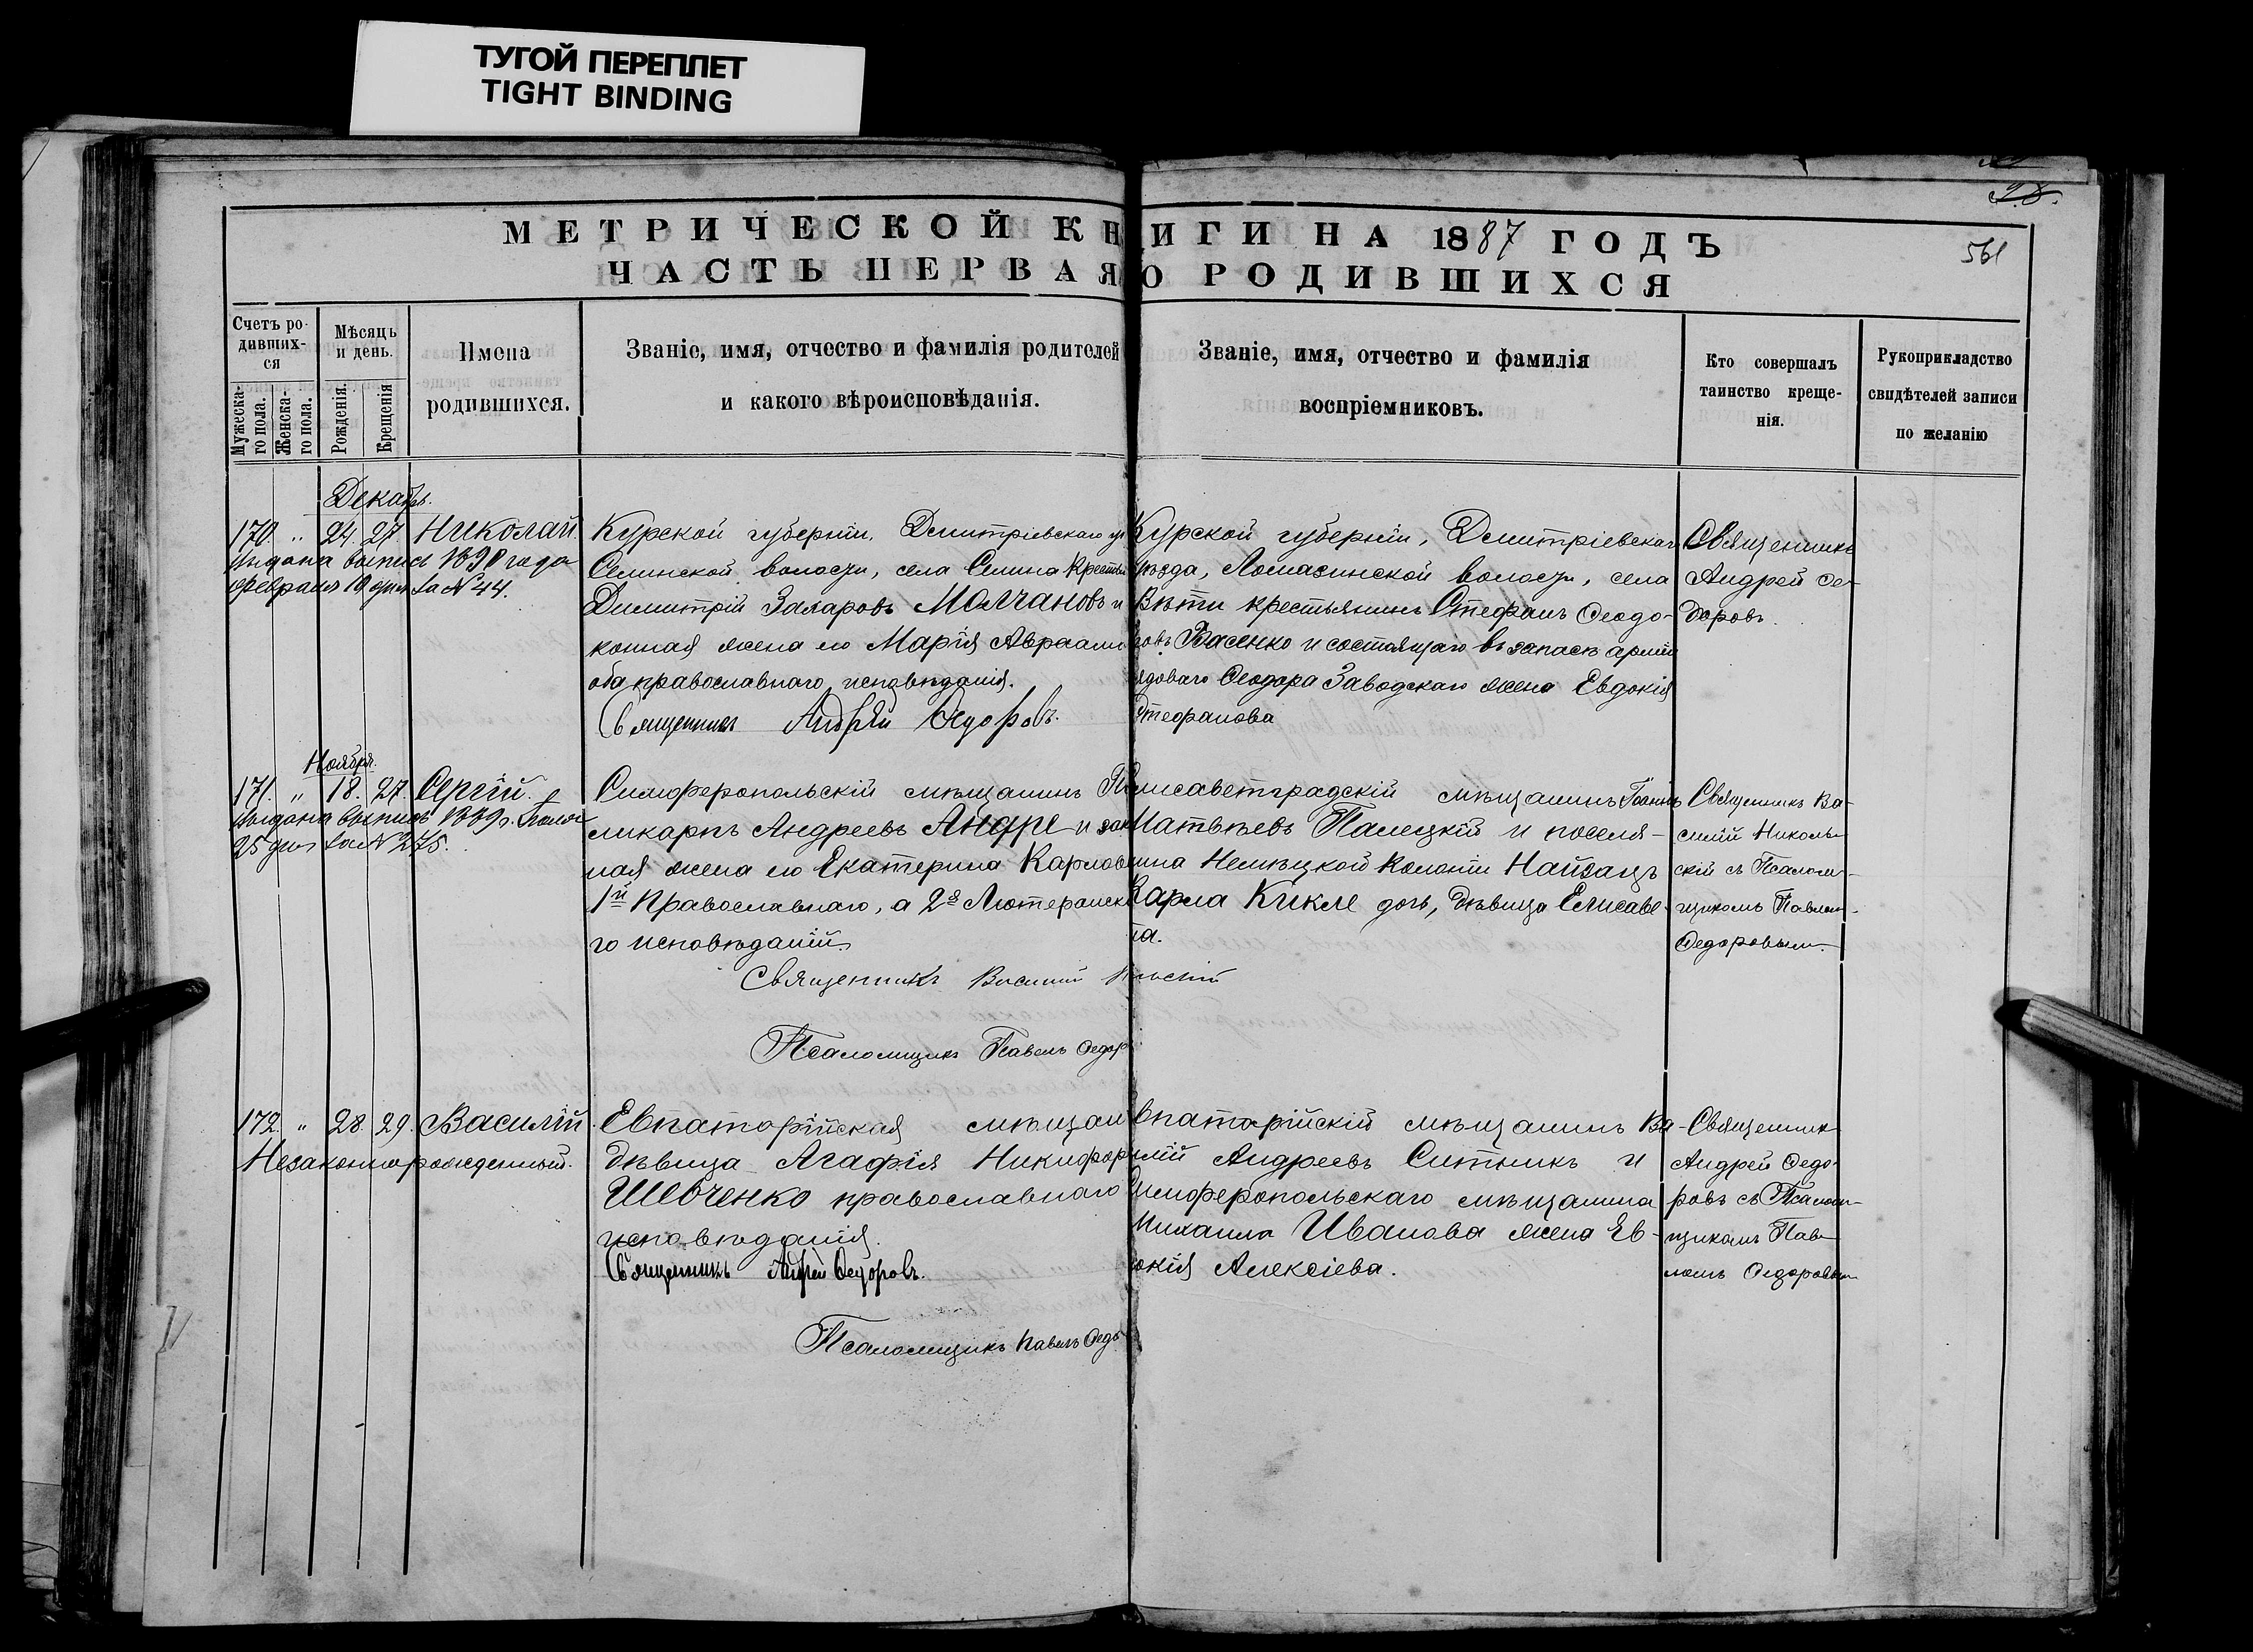 ТУГОЙ ПЕРЕПЛЕТ
TIGHT BINDING
28.
561
МЕТРИЧЕСКОЙ КНИГИ НА 1887 ГОДЪ
ЧАСТЬ ПЕРВАЯ О РОДИВШИХСЯ
Счетъ ро-
дивших-
ся
Мужеска-
го пола.
Женска-
го пола.
Мѣсяцъ
и день.
Рожденія.
Крещенія
Имена
родившихся.
Званіе, имя, отчество и фамилія родителей
и какого вѣроисповѣданія.
Званіе, имя, отчество и фамилія
воспріемниковъ.
Кто совершалъ
таинство креще-
нія.
Рукоприкладство
свидѣтелей записи
по желанію
Декабрь.
170. " 24. 27. Николай.
Выдана выпись 1890 года
Февраля 19 дня за № 44.
Курской губерніи, Димитріевскаго у
Селинской волости, села Селина крестья
Димитрій Захаровъ Молчановъ и
конная жена его Марія Авраами
оба православнаго исповѣданія.
Священникъ Андрей Федоровъ.
Курской губерніи, Димитріевскаго
уѣзда, Ломакинской волости, села
Вѣти крестьянинъ Стефанъ Феодо-
ровъ Васенко и состоящаго въ запасѣ арміи
рядоваго Феодора Заводскаго жена Евдокія
Стефанова
Священникъ
Андрей Фе-
доровъ.
Ноября.
171. " 18. 27. Сергій.
Выдана выпись 1889 г.
25 дня за № 275.
Симферопольскій мѣщанинъ По
ликарпъ Андреевъ Андре и зак
ная жена его Екатерина Карлов
1й Православнаго, а 2я Лютеранска
го исповѣданій.
Священникъ Василій Никольскій
Псаломщикъ Павелъ Федор
Елисаветградскій мѣщанинъ Іоаннъ
Матвѣевъ Палецкій и поселя-
нина Немѣцкой Колоніи Найзацъ
Карла Кикле дочь, дѣвица Елисаве-
та.
Священникъ Ва-
силій Николь-
скій съ Псалом-
щикомъ Павлом
Федоровым.
172. " 28. 29. Василій.
Незаконнорожденный.
Евпаторійская мѣщан
дѣвица Агафія Никифор
Шевченко православнаго
исповѣданія.
Священникъ Андрей Федоровъ.
Псаломщикъ Павелъ Федо
Евпаторійскій мѣщанинъ Ва-
силій Андреевъ Ситникъ и
Симферопольскаго мѣщанина
Михаила Иванова жена Ев-
докія Алексіева.
Священник
Андрей Федо-
ровъ съ Псалом-
щикомъ Пав-
ломъ Федоровым